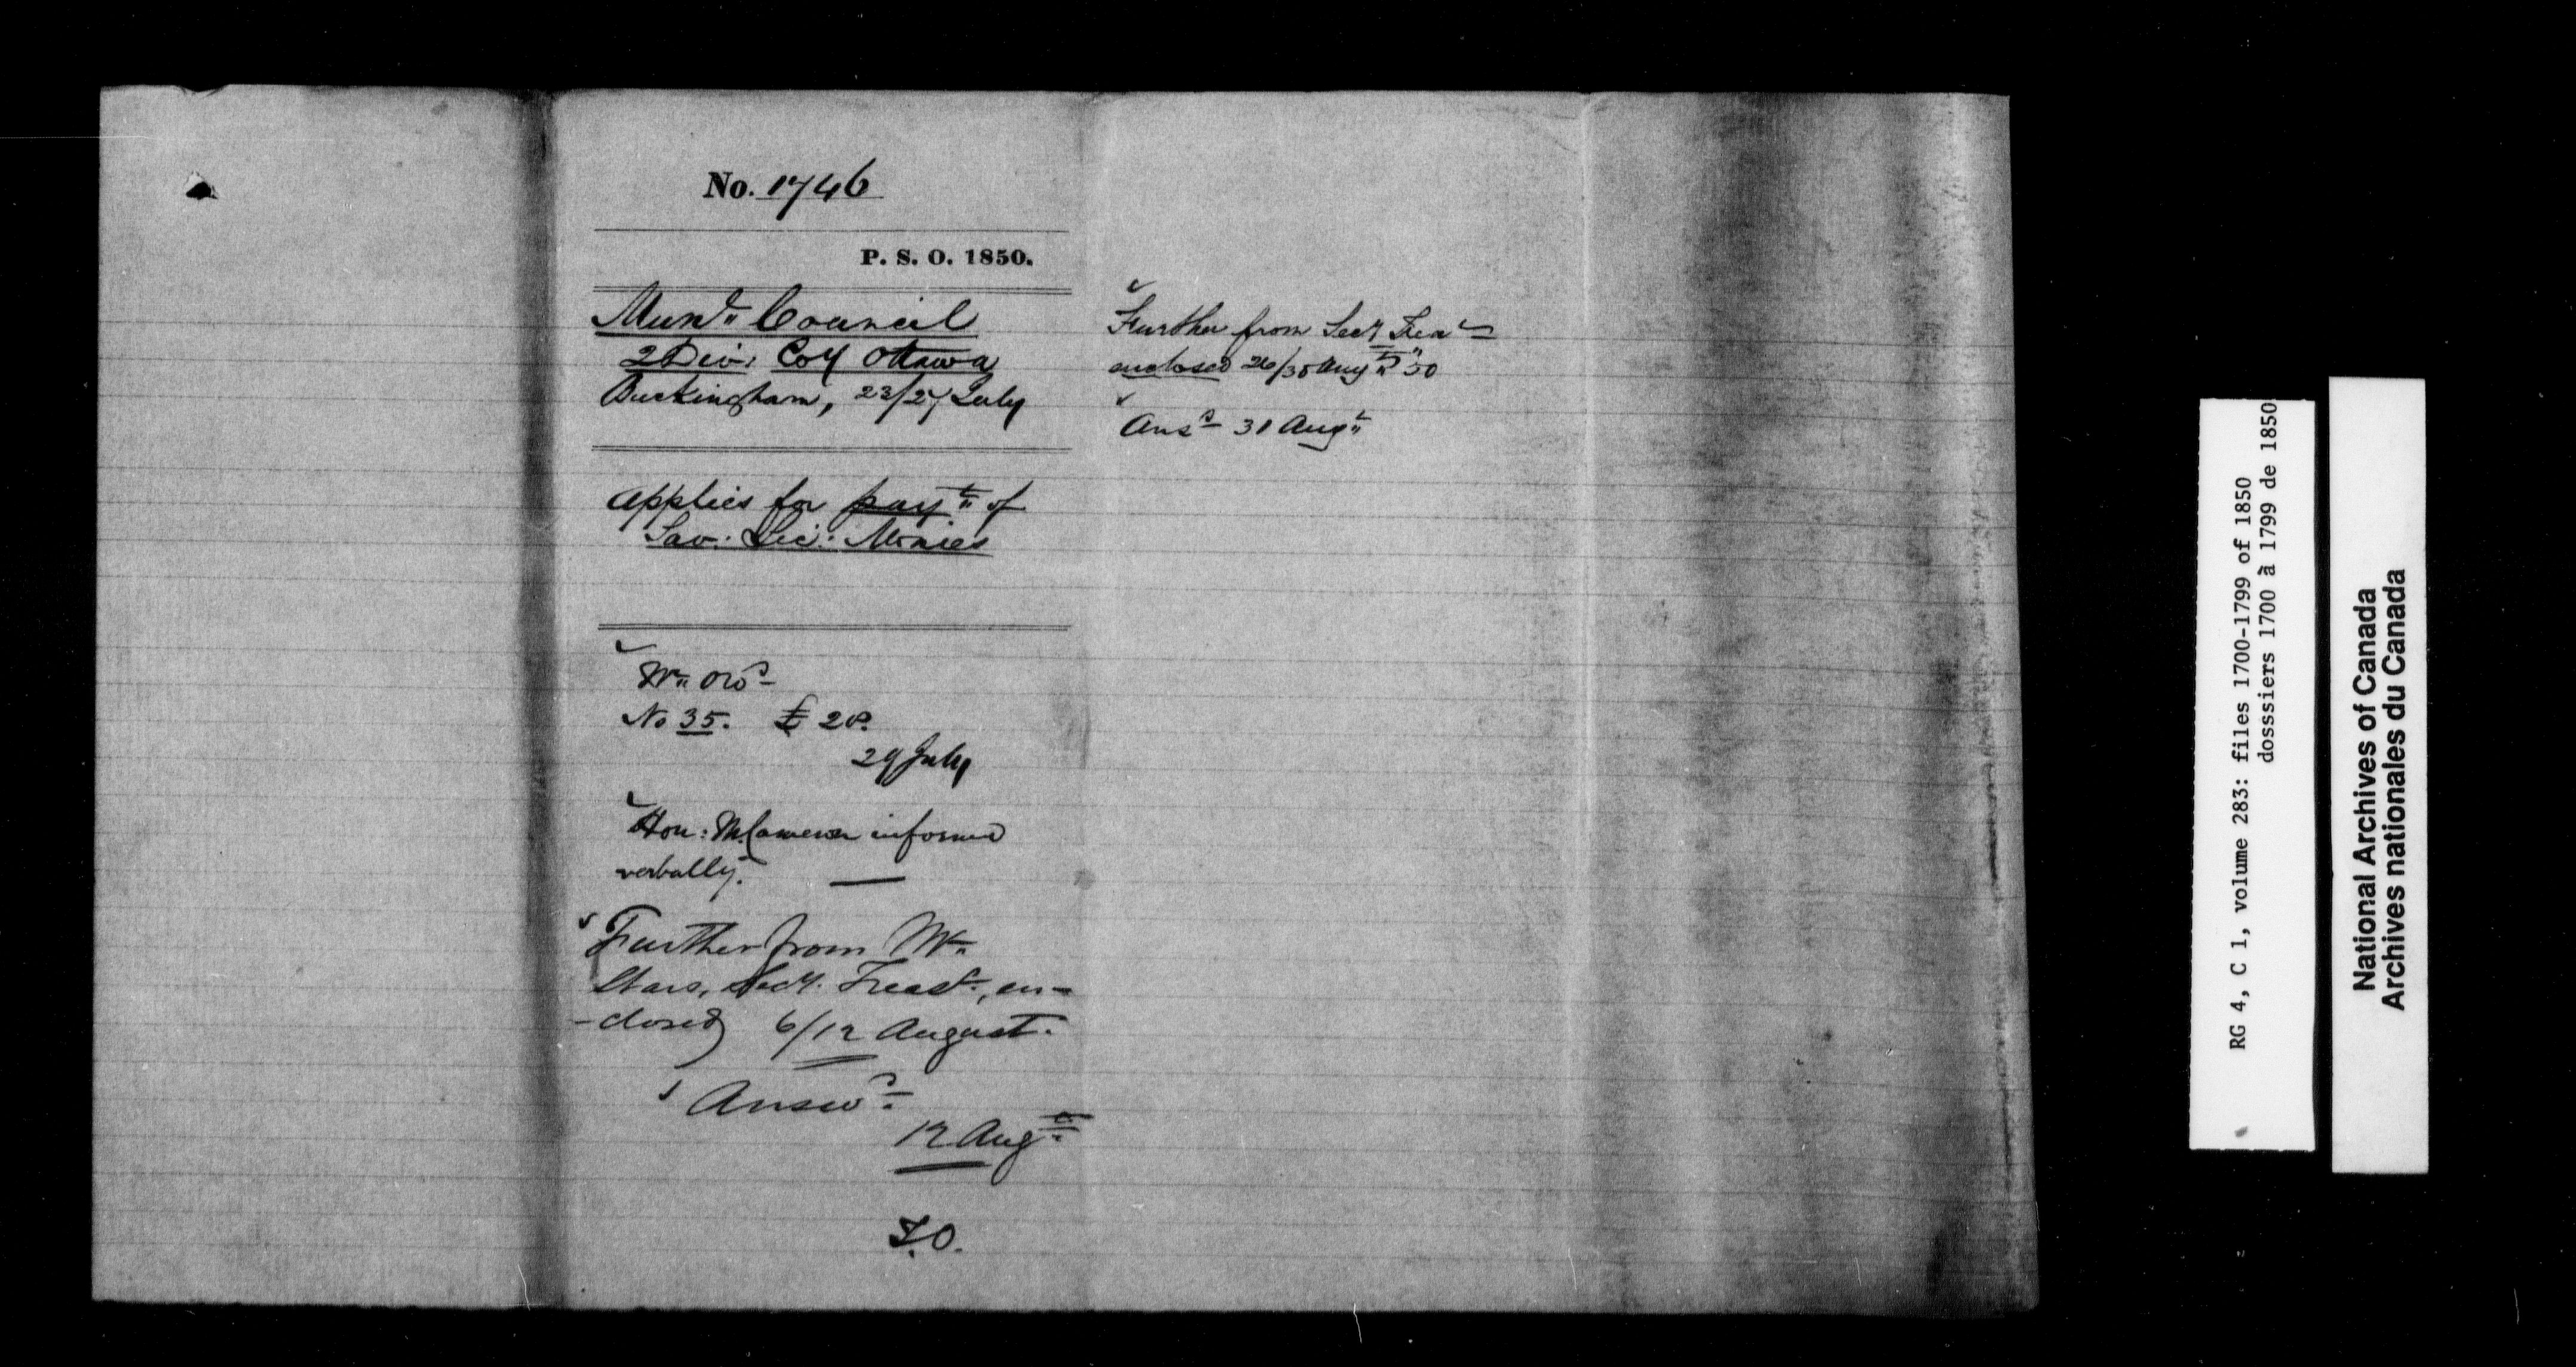 No. 1746
P. S. O. 1850.
Mun'l Council
2 Div: Coy Ottawa
Buckingham, 23/27 July
Applies for payt of
Tav: Lic: Monies
Wt ord
No 35. £ 20.
29 July
Hon: M. Cameron informed
verbally.
Further from Mr
Secy. Treasr., en-
-closed 6/12 August.
Answd
12 Augt
T.O.
Further from Secy Trear
enclosed 26/30 Augt 50
Ansd 31 Augt
RG 4, C 1, volume 283: files 1700-1799 of 1850
dosssiers 1700 à 1799 de 1850
National Archives of Canada
Archives nationales du Canada